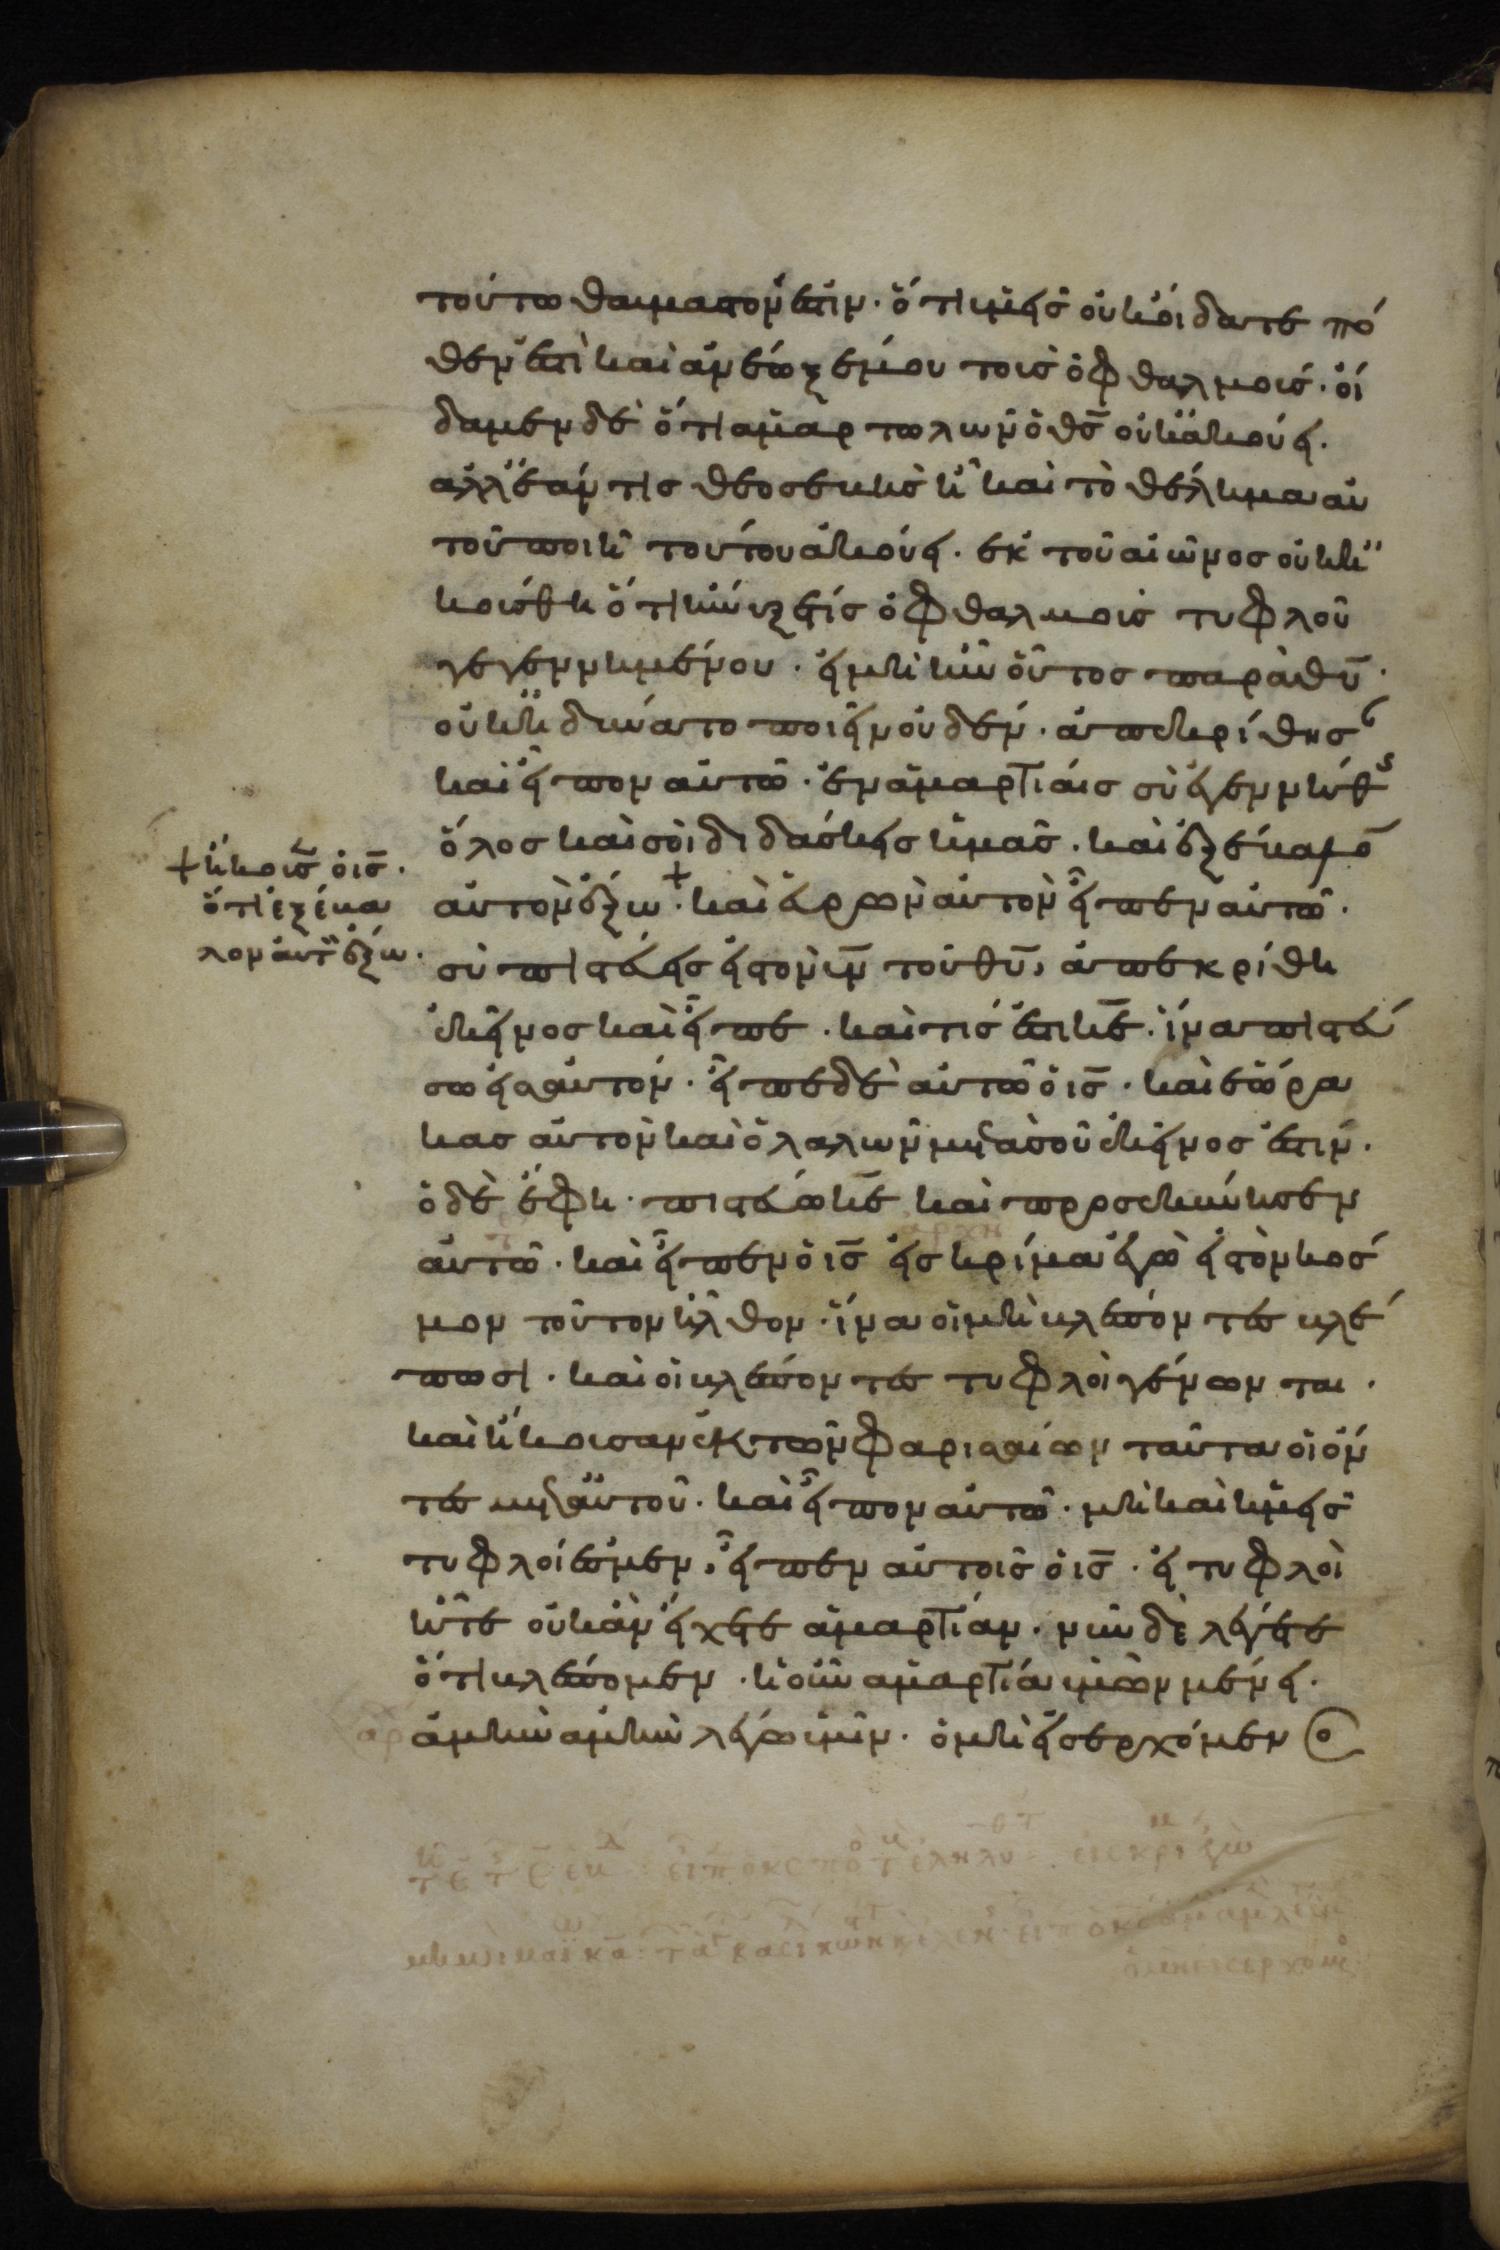 τούτω θαυμαστόν ἐστιν· ὅτι ὑμεῖς οὐκ οἴδατε πό
θεν ἐστὶ καὶ ἀνέωξέ μου τοὺς ὀφθαλμούς· οἴ
δαμεν δὲ ὅτι ἁμαρτωλῶν ὁ θ̅ς̅ οὐκ ἀκούει·
ἀλλ' ἐάν τις θεοσεβὴς ἦ καὶ τὸ θέλημα αὐ
τοῦ ποιῆ τούτου ἀκούει· ἐκ τοῦ αἰῶνος οὐκ ἠ
κούσθη ὅτι ἤνοιξέ τις ὀφθαλμοὺς τυφλοῦ
γεγεννημένου· εἰ μὴ ἦν οὗτος παρὰ θ̅υ̅·
οὐκ ἠδύνατο ποιεῖν οὐδέν· ἀπεκρίθησ
καὶ εἶπον αὐτῶ· ἐν ἁμαρτίαις σὺ ἐγεννήθς
ὅλος καὶ σὺ διδάσκεις ἡμᾶς· καὶ ἐξέβαλο̅
αὐτὸν ἔξω + · καὶ εὑρὼν αὐτὸν εἶπεν αὐτῶ·
+ ἤκουσε̅ ὁ ι̅ς̅·
ὅτι ἐξέβα
λον αὐτὸν ἔξω·
σὺ πιστεύεις εἰς τὸν υ̅ν̅ τοῦ θ̅υ̅, ἀπεκρίθη
ἐκεῖνος καὶ εἶπε· καὶ τίς ἐστι κ̅ε̅· ἵνα πιστεύ
σω εἰς αὐτόν· εἶπε δὲ αὐτῶ ὁ ι̅ς̅· καὶ ἑώρα
κας αὐτὸν καὶ ὁ λαλῶν μετὰ σοῦ ἐκεῖνος ἐστιν·
ὁ δὲ ἔφη· πιστεύω κ̅ε̅ καὶ προσεκύνησεν
αὐτῶ· καὶ εἶπεν ὁ ι̅ς̅ εἰς κρίμα ἐγὼ εἰς τὸν κόσ
μον τοῦτον ἦλθον· ἵνα οἱ μὴ βλέποντες βλέ
πωσι· καὶ οἱ βλέποντες τυφλοὶ γένωνται·
καὶ ἤκουσαν ἐκ τῶν φαρισαίων ταῦτα οἱ ὄν
τες μετ' αὐτοῦ· καὶ εἶπον αὐτῶ· μὴ καὶ ἡμεῖς
τυφλοί ἐσμεν, εἶπεν αὐτοῖς ὁ ι̅ς̅· εἰ τυφλοὶ
ἦτε οὐκ ἂν εἴχετε ἁμαρτίαν· νῦν δὲ λέγετε
ὅτι βλέπομεν· ἡ οὖν ἁμαρτία ὑμῶν μένει·
ἀμὴν ἀμὴν λέγω ὑμῖν· ὁ μὴ εἰσερχόμενο